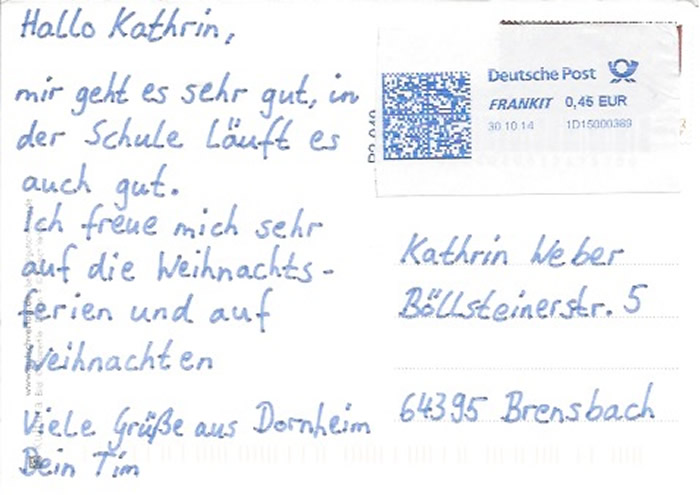 Hallo Kathrin,
mir geht es sehr gut, in
der Schule läuft es
auch gut.
Ich freue mich sehr
auf die Weihnachts-
ferien und auf
Weihnachten
Viele Grüße aus Dornheim
Dein Tim
Deutsche Post
FRANKIT 0,45 EUR
30.10.14 1D15000389
Kathrin Weber
Böllsteinerstr. 5
64395 Brensbach